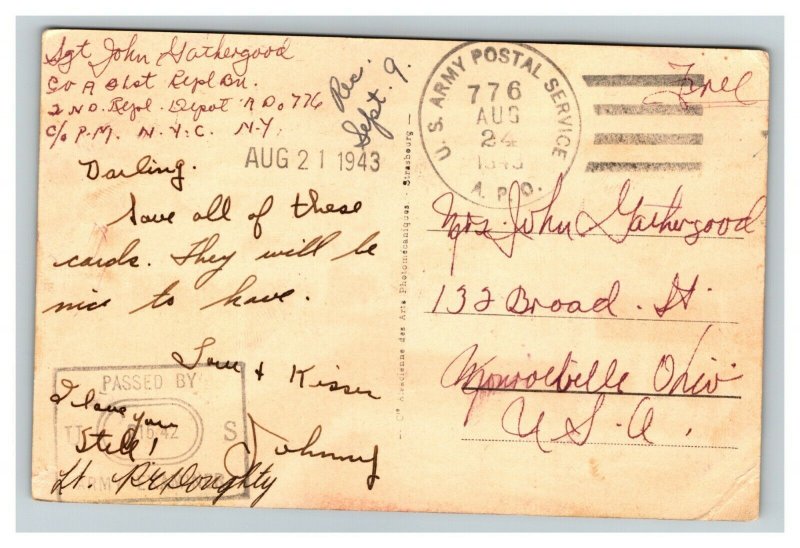 Sgt John Gathergood
Co A 81st Repl Bn.
2ND. Repl. Depot APO 776
C/o P.M. N.Y.C. N.Y.
Rec.
Sept. 9.
AUG 21 1943
Darling.
Save all of these
cards. They will be
nice to have.
Love + Kisses
Johnny
I love you
Still!
PASSED BY
U S
ARMY
Lt. Doughty
Cie Alsacienne des Arts Photomécaniques - Strasbourg
U.S. ARMY POSTAL SERVICE
776
AUG
24
1943
A.P.O.
Free
Mrs. John Gathergood
132 Broad. St.
Monroeville Ohio
U.S.A.